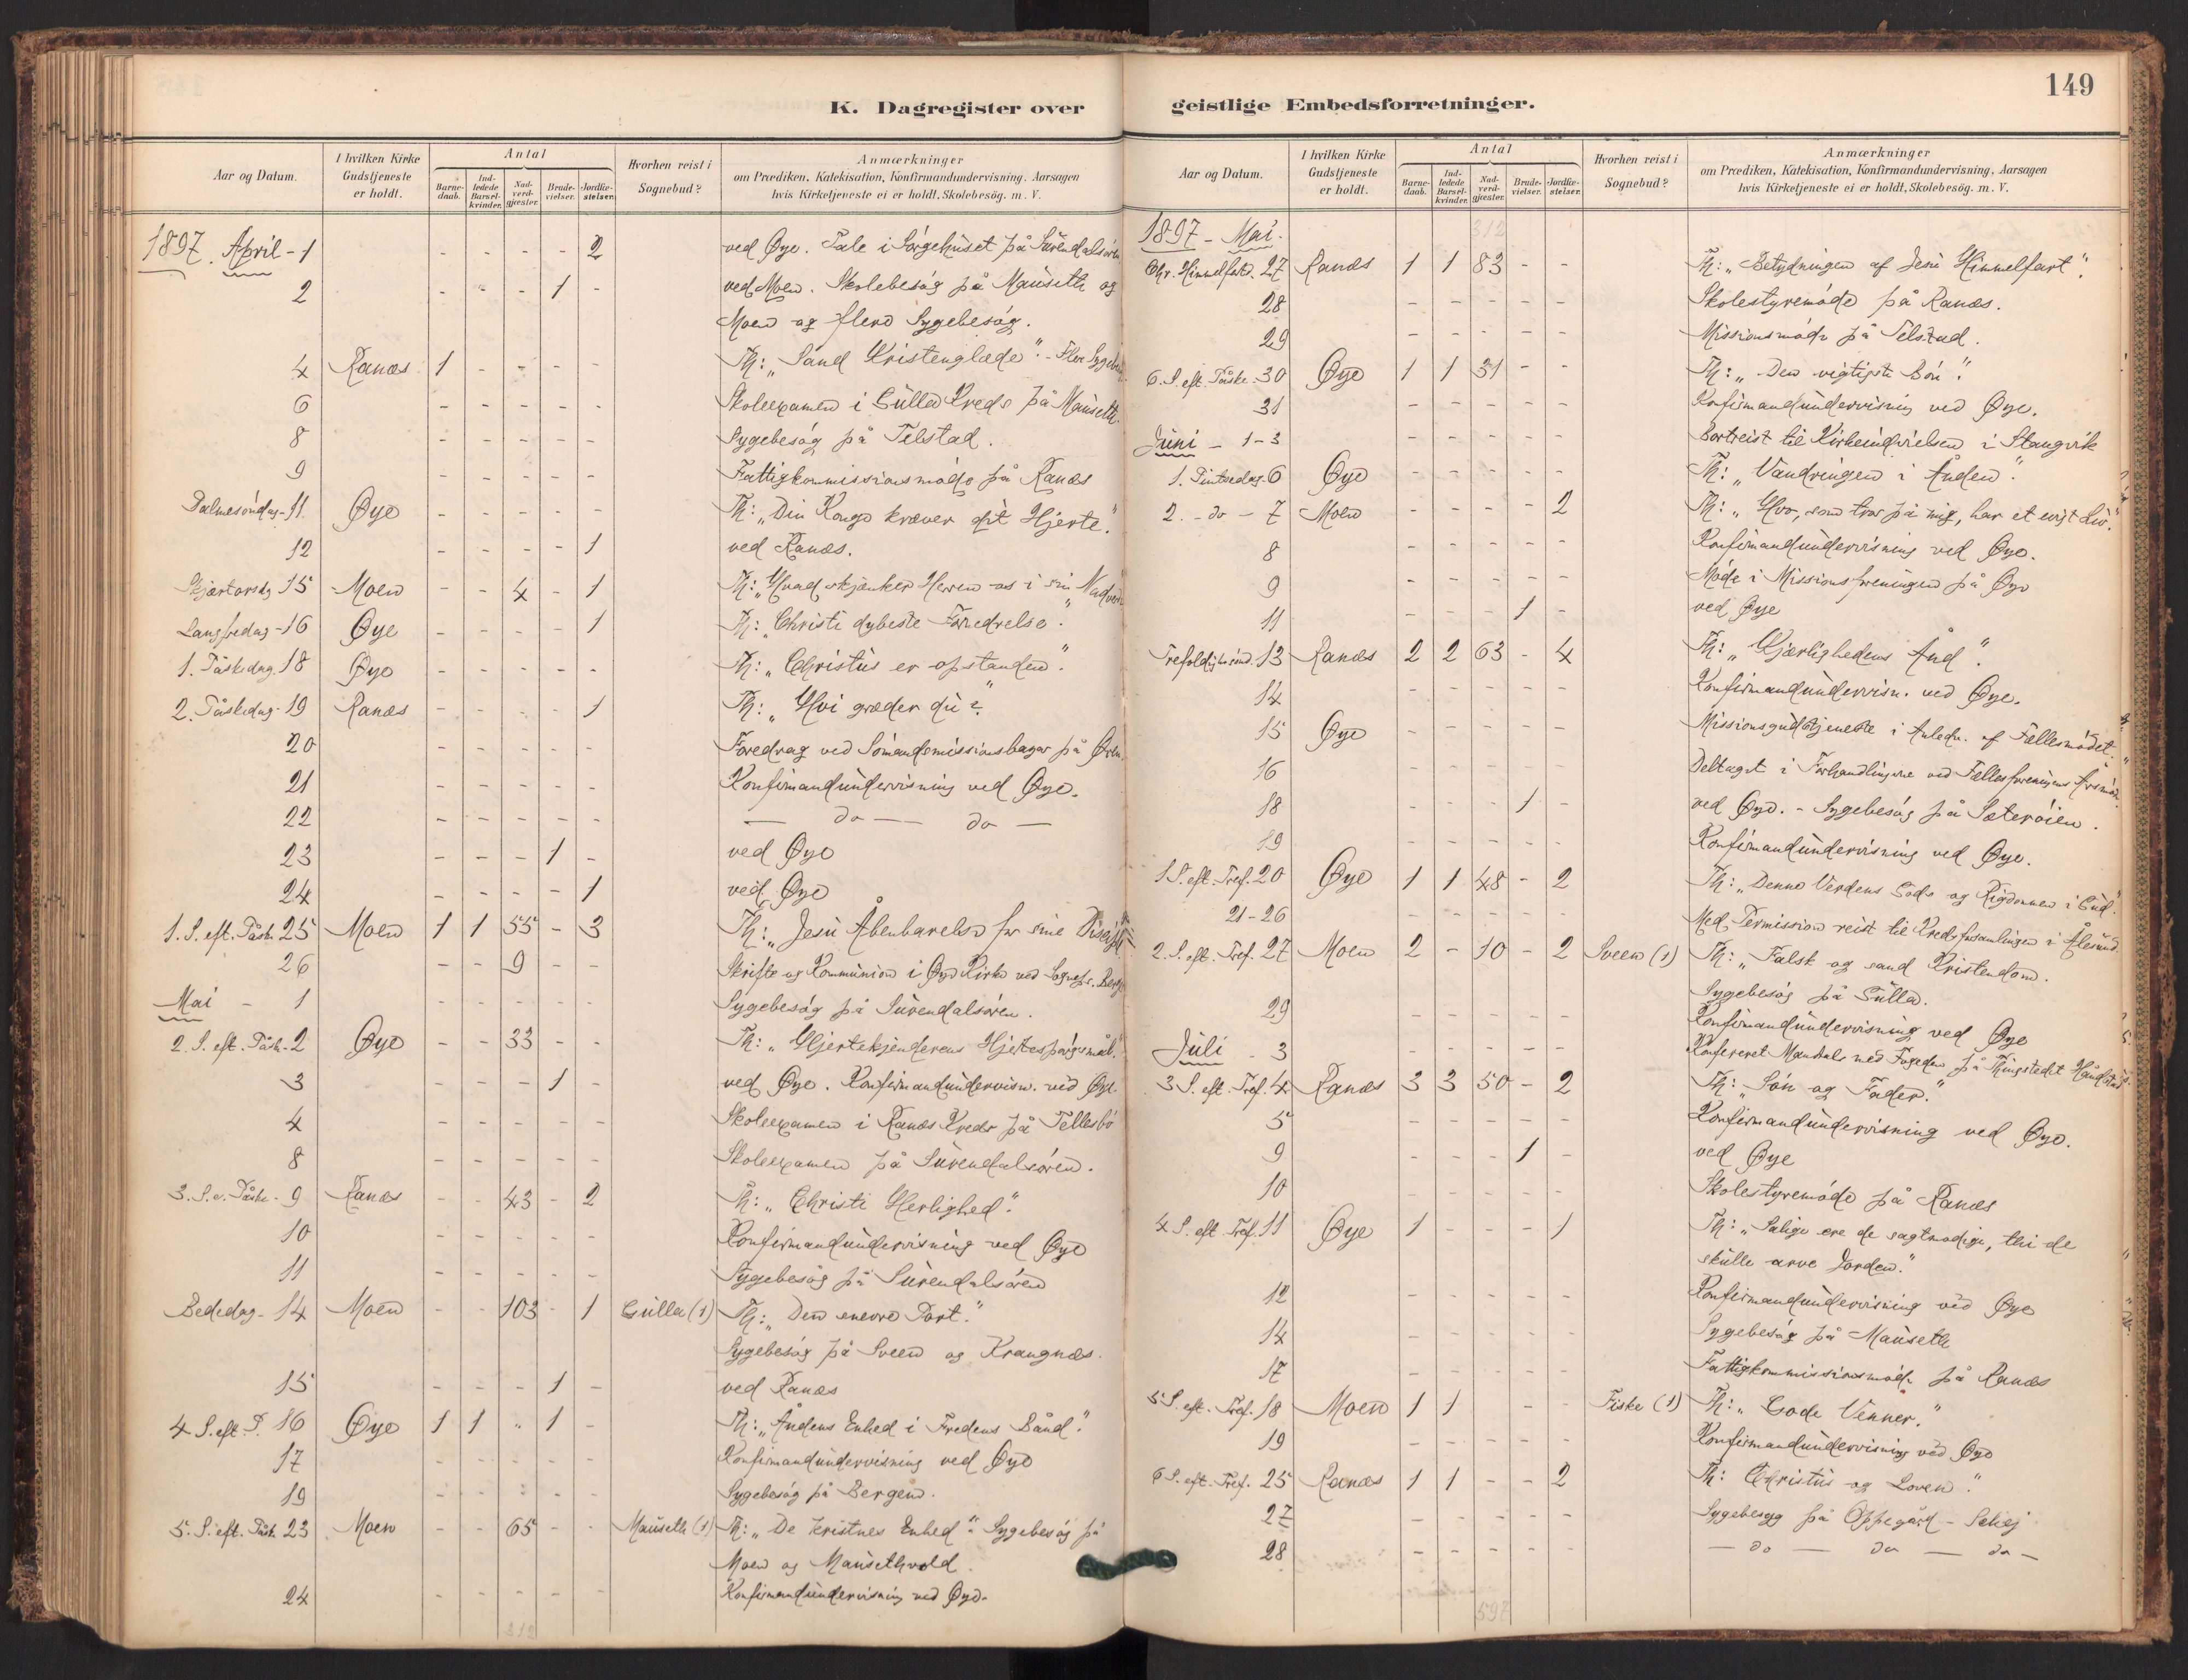 K. Dagregister over
Aar og Datum.
I hvilken Kirke Gudstjeneste er holdt.
Antal
Barnedaab.
Indledede Barselkvinder.
Nadverdgjæster.
Brudevielser.
Jordfæstelser.
Hvorhen reist i Sognebud?
Anmærkninger
om Prædiken, Katekisation, Konfirmandundervisning. Aarsagen
hvis Kirketjeneste ei er holdt, Skolebesøg. m. V.
1897. April - 1 - - - - 2 ved Øye. Tale i Sørgehuset på Surendalsøren
2 - - - 1 - ved Moen. Skolebesøg på Mauseth og
Moen og flere Sygebesøg.
4 Ranæs 1 - - - - Th: „Sand Kristenglæde". - Flere Sygebesøg
6 - - - - - Skoleexamen i Gulla Kreds på Mauseth.
8 - - - - - Sygebesøg på Telstad.
9 - - - - - Fattigkommissionsmøde på Ranæs
Palmesøndag - 11 Øye - - - - - Th: „Din Konge kræver dit Hjerte."
12 - - - - 1 ved Ranæs.
Skjærtorsdg 15 Moen - - 4 - 1 Th: „Hvad skjænker Herren os i sin Nadver
Langfredag - 16 Øye - - - - 1 Th: „Christi dybeste Fornedrelse".
1. Påskedag. 18 Øye - - - - - Th: „Christus er opstanden".
2. Påskedag - 19 Ranæs - - - - 1 Th: „Hvi græder du?"
20 - - - - - Foredrag ved Sømandsmissionsbasar på Øren.
21 - - - - - Konfirmandundervisning ved Øye.
22 - - - - - — do — do —
23 - - - 1 - ved Øye
24 - - - - 1 ved Øye
1. S. eft. Påsk. 25 Moen 1 1 55 - 3 Th: „Jesu Åbenbarelse for sine Disciple"
26 - - 9 - - Skrifte og Kommunion i Øye Kirke ved Sognepr. Berg
Mai - 1 - - - - - Sygebesøg på Surendalsøren.
2. S. eft. Påsk. 2 Øye - - 33 - - Th: „Hjertekjenderens Hjertespørgsmål."
3 - - - 1 - ved Øye. Konfirmandundervisn. ved Øye.
4 - - - - - Skoleexamen i Ranæs Kreds på Tellesbø
8 - - - - - Skoleexamen på Surendalsøren.
3. S. e. Påske - 9 Ranæs - - 43 - 2 Th: „Christi Herlighed".
10 - - - - - Konfirmandundervisning ved Øye
11 - - - - - Sygebesøg på Surendalsøren
Bededag - 14 Moen - - 103 - 1 Gulla (1) Th: „Den snevre Port."
Sygebesøg på Sveen og Krangnæs.
15 - - - 1 - ved Ranæs
4 S. eft. P. 16 Øye 1 1 - 1 - Th: „Åndens Enhed i Fredens Bånd".
17 - - - - - Konfirmandundervisning ved Øye
19 - - - - - Sygebesøg på Bergem.
5. S. eft. Påsk 23 Moen - - 65 - - Mauseth (1) Th: „De kristnes Enhed". Sygebesøg på
Moen og Mausethvold.
24 - - - - - Konfirmandundervisning ved Øye.
312
149
geistlige Embedsforretninger.
Aar og Datum.
I hvilken Kirke Gudstjeneste er holdt.
Antal
Barnedaab.
Indledede Barselkvinder.
Nadverdgjæster.
Brudevielser.
Jordfæstelser.
Hvorhen reist i Sognebud?
Anmærkninger
om Prædiken, Katekisation, Konfirmandundervisning, Aarsagen
hvis Kirketjeneste ei er holdt, Skolebesøg. m. V.
1897 - Mai. 312
Chr. Himmelfartsd. 27 Ranæs 1 1 83 - - Th: „Betydningen af Jesu Himmelfart".
28 - - - - - Skolestyremøde på Ranæs.
29 - - - - - Missionsmøde på Telstad.
6. S. eft. Påske. 30 Øye 1 1 31 - - Th: „Den vigtigste Bøn".
31 - - - - - Konfirmandundervisning ved Øye.
Juni - 1-3 - - - - - Bortreist til Kirkeindvielsen i Stangvik
1. Pintsedag. 6 Øye - - - - - Th: „Vandringen i Ånden".
2. - do - 7 Moen - - - - 2 Th: „Hver, som tror på mig, har et evigt Liv."
8 - - - - - Konfirmandundervisning ved Øye.
9 - - - - - Møde i Missionsforeningen på Øye
11 - - - 1 - ved Øye
Trefoldighedsønd. 13 Ranæs 2 2 63 - 4 Th: „Kjærlighedens Ånd".
14 - - - - - Konfirmandundervisn. ved Øye.
15 Øye - - - - - Missionsgudstjeneste i Anledn. af Fællesmødet.
16 - - - - - Deltaget i Forhandlingerne ved Fællesforeningens Årsmøde.
18 - - - 1 - ved Øye. - Sygebesøg på Sæterøien.
19 - - - - - Konfirmandundervisning ved Øye.
1 S. eft. Tref. 20 Øye 1 1 48 - 2 Th: „Denne Verdens Gods og Rigdommen i Gud".
21-26 - - - - - Med Permission reist til Kredsforsamlingen i Ålesund.
2. S. eft. Tref. 27 Moen 2 - 10 - 2 Sveen (1) Th: „Falsk og sand Kristendom.
Sygebesøg på Gulla.
29 - - - - - Konfirmandundervisning ved Øye
Juli - 3 - - - - - Konfereret Mandtale med Fogeden på Thingstedet
3 S. eft. Tref. 4 Ranæs 3 3 50 - 2 Th: „Søn og Fader."
5 - - - - - Konfirmandundervisning ved Øye.
9 - - - 1 - ved Øye
10 - - - - - Skolestyremøde på Ranæs
4 S. eft. Tref. 11 Øye 1 - - - 1 Th: „Salige ere de sagtmodige, thi de
skulle arve Jorden."
12 - - - - - Konfirmandundervisning ved Øye
14 - - - - - Sygebesøg på Mauseth
17 - - - - - Fattigkommissionsmøde på Ranæs
5 S. eft. Tref. 18 Moen 1 1 - - Fiske (1) Th: „Gode Venner."
19 - - - - - Konfirmandundervisning ved Øye
6 S. eft. Tref. 25 Ranæs 1 1 - - 2 Th: Christus og Loven".
27 - - - - - Sygebesøg på Oppegård -
28 - - - - - — do — do — do —
597